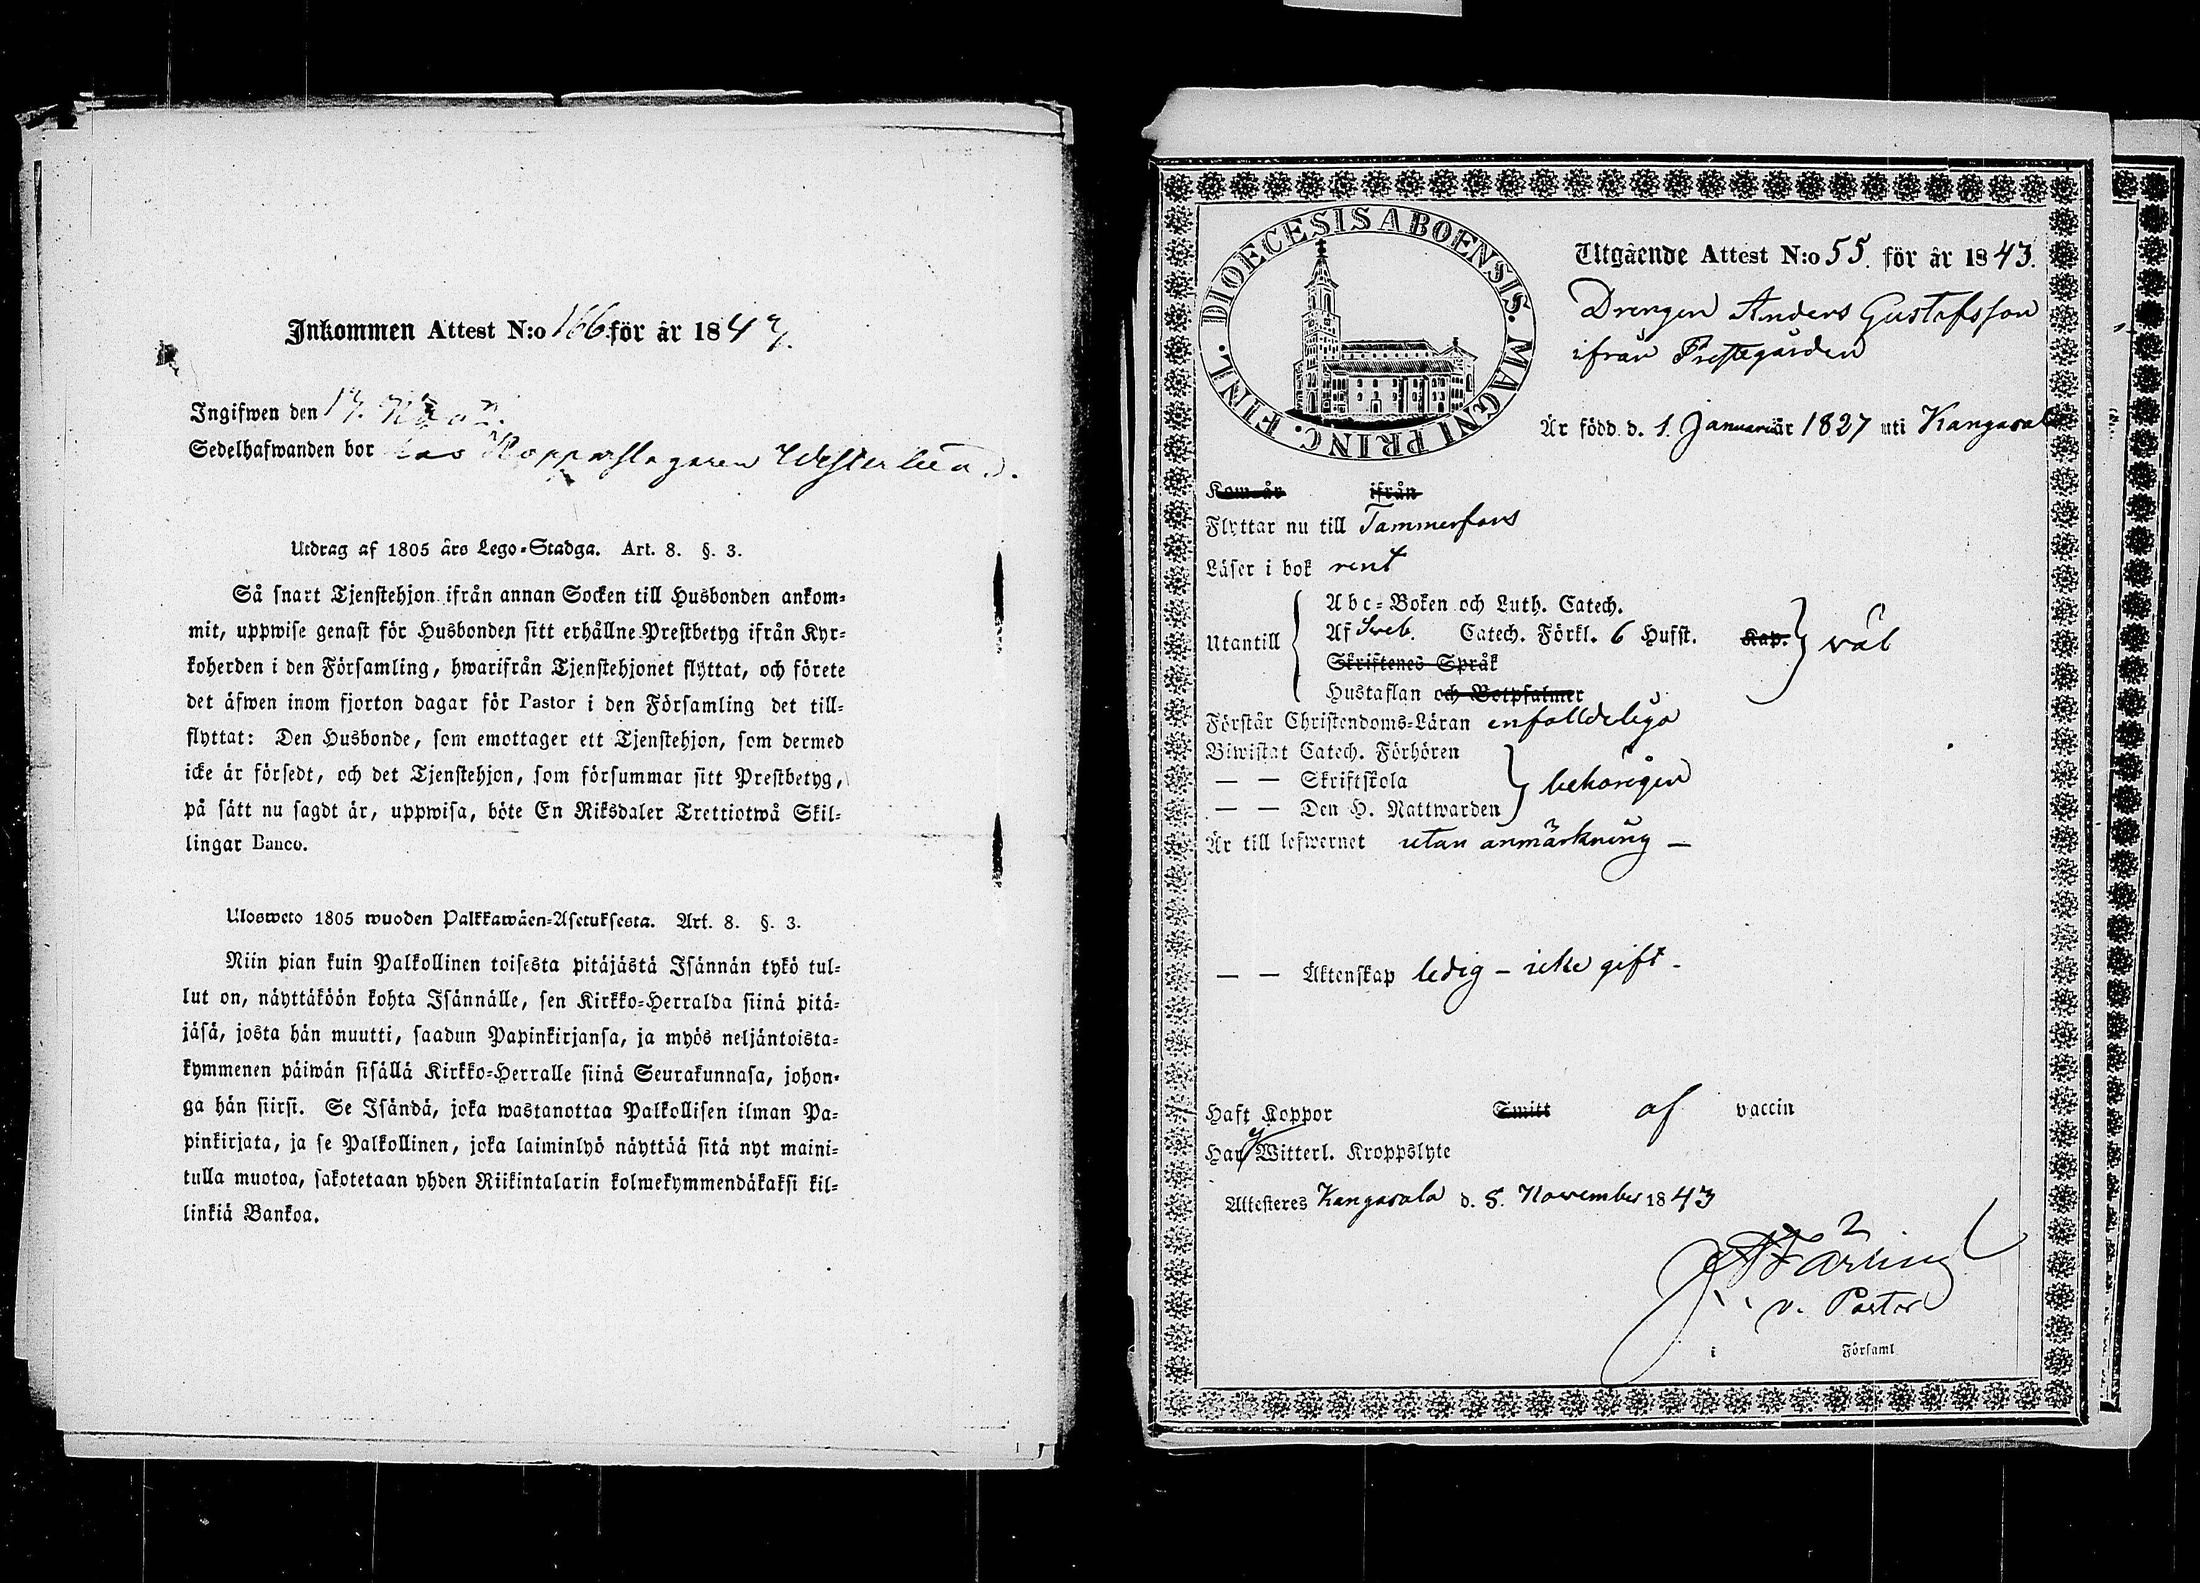 Inkommen Attest N:o 166 för år 1843.
Ingifwen den 17. Nov.
Sedelhafwanden bor hos Kopparslagaren Westerlund.
Utdrag af 1805 års Lego-Stadga. Art. 8. §. 3.
Så snart Tjenstehjon ifrån annan Socken till Husbonden ankom-
mit, uppwise genast för Husbonden sitt erhållne Prestbetyg ifrån Kyr-
koherden i den Församling, hwarifrån Tjenstehjonet flyttat, och förete
det äfwen inom fjorton dagar för Pastor i den Församling det till-
flyttat: Den Husbonde, som emottager ett Tjenstehjon, som dermed
icke är försedt, och det Tjenstehjon, som försummar sitt Prestbetyg,
på sätt nu sagdt är, uppwisa, böte En Riksdaler Trettiotwå Skil-
lingar Banco.
Ulosweto 1805 wuoden Palkkawäen-Asetuksesta. Art. 8. §. 3.
Niin pian kuin Palkollinen toisesta pitäjästä Isännän tykö tul-
lut on, näyttäköön kohta Isännälle, sen Kirkko-Herralda siinä pitä-
jäsä, josta hän muutti, saadun Papinkirjansa, ja myös neljäntoista-
kymmenen päiwän sisällä Kirkko-Herralle siinä Seurakunnasa, johon-
ga hän siirsi. Se Isändä, joka wastanottaa Palkollisen ilman Pa-
pinkirjata, ja se Palkollinen, joka laiminlyö näyttää sitä nyt maini-
tulla muotoa, sakotetaan yhden Riikintalarin kolmekymmendäkaksi kil-
linkiä Bankoa.
DIOECESIS ABOENSIS. MAGNI PRINC. FINL.
Utgående Attest N:o 55. för år 1843.
Drengen Anders Gustafsson
ifrån Prestegården
Är född d. 1. Januarii år 1827 uti Kangasala
Kom år ifrån
Flyttar nu till Tammerfors
Läser i bok rent
Utantill Abc-Boken och Luth. Catech.
Af Sveb. Catech. Förkl. 6 Hufst. Kap. väl
Skriftenes Språk
Hustaflan och Botpsalmer
Förstår Christendoms-Läran enfalldeliga
Biwistat Catech. Förhören
— — Skriftskola behörigen
— — Den H. Nattwarden
Är till lefwernet utan anmärkning —
— — Äktenskap ledig – icke gift –
Haft Koppor Smitt af vaccin
Har Witterl. Kroppslyte
Attesteres Kangasala d. 5. November 1843
v. Pastor
i Församl